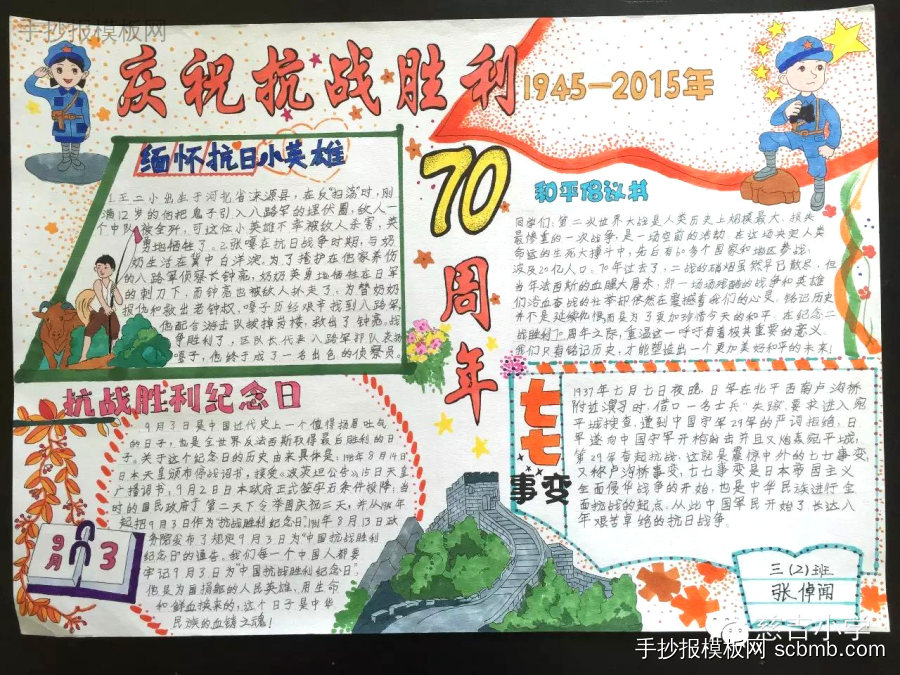 手抄报模板网
庆祝抗战胜利
1945—2015年
70
周年
缅怀抗日小英雄
1.王二小出生于河北省涞源县,在反"扫荡"时,刚
满12岁的他把鬼子引入八路军的埋伏圈,敌人一
个中队被全歼,可这位小英雄不幸被敌人杀害,英
勇地牺牲了。2.张嘎在抗日战争时期,与奶
奶生活在冀中白洋淀,为了掩护在他家养伤
的八路军侦察长钟亮,奶奶英勇地牺牲在日军
的刺刀下,而钟亮也被敌人抓走了,为替奶奶
报仇和救出老钟叔,嘎子历经艰辛找到八路军,
他配合游击队拔掉岗楼,救出了钟亮,战
争胜利了,区队长代表八路军部队表扬
嘎子,他终于成了一名出色的侦察员。
和平倡议书
同学们:第二次世界大战是人类历史上规模最大、损失
最惨重的一次战争,是一场空前的浩劫,在这场决定人类
命运的生死大搏斗中,先后有60多个国家和地区参战,
波及20亿人口。70年过去了,二战的硝烟虽然早已散尽,但
当年法西斯的血腥大屠杀,那一场场残酷的战争和英雄
们浴血奋战的壮举却依然在震撼着我们的心灵。铭记历史
并不是延续仇恨而是为了更加珍惜今天的和平。在纪念二
战胜利70周年之际,重温这一呼吁有着极其重要的意义。
我们只有铭记历史,才能塑造出一个更加美好和平的未来!
抗战胜利纪念日
9月3日是中国近代史上一个值得扬眉吐气
的日子,也是全世界反法西斯取得最后胜利的日
子。关于这个纪念日的历史由来具体是:1945年8月14日
日本天皇颁布停战诏书,接受《波茨坦公告》,15日天皇
广播诏书,9月2日日本政府正式签字无条件投降;当
时的国民政府于第二天下令举国庆祝三天,并从1946年
起把9月3日作为"抗战胜利纪念日"。1951年8月13日政
务院发布了规定9月3日为"中国抗战胜利
纪念日"的通告。我们每一个中国人都要
牢记9月3日为"中国抗战胜利纪念日"。
他是为国捐躯的人民英雄,用生命
和鲜血换来的,这个日子是中华
民族的血铸之魂!
9月
3
七七
事变
1937年七月七日夜晚,日军在北平西南卢沟桥
附近演习时,借口一名士兵"失踪",要求进入宛
平城搜查,遭到中国守军29军的严词拒绝,日
军遂向中国守军开枪射击并且又炮轰宛平城,
第29军奋起抗战,这就是震惊中外的七七事变,
又称卢沟桥事变,七七事变是日本帝国主义
全面侵华战争的开始,也是中华民族进行全
面抗战的起点。从此中国军民开始了长达八
年艰苦卓绝的抗日战争。
三(2)班
张倬闻
慈吉小学
手抄报模板网 scbmb.com